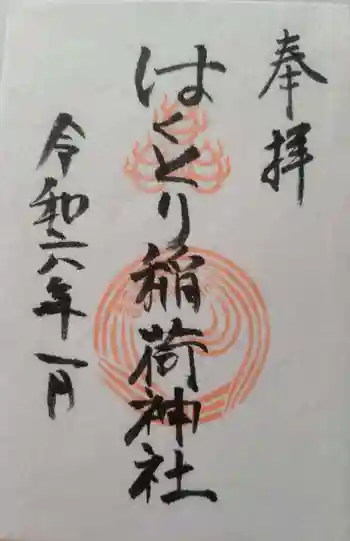 奉拝
はくとり稲荷神社
令和六年一月